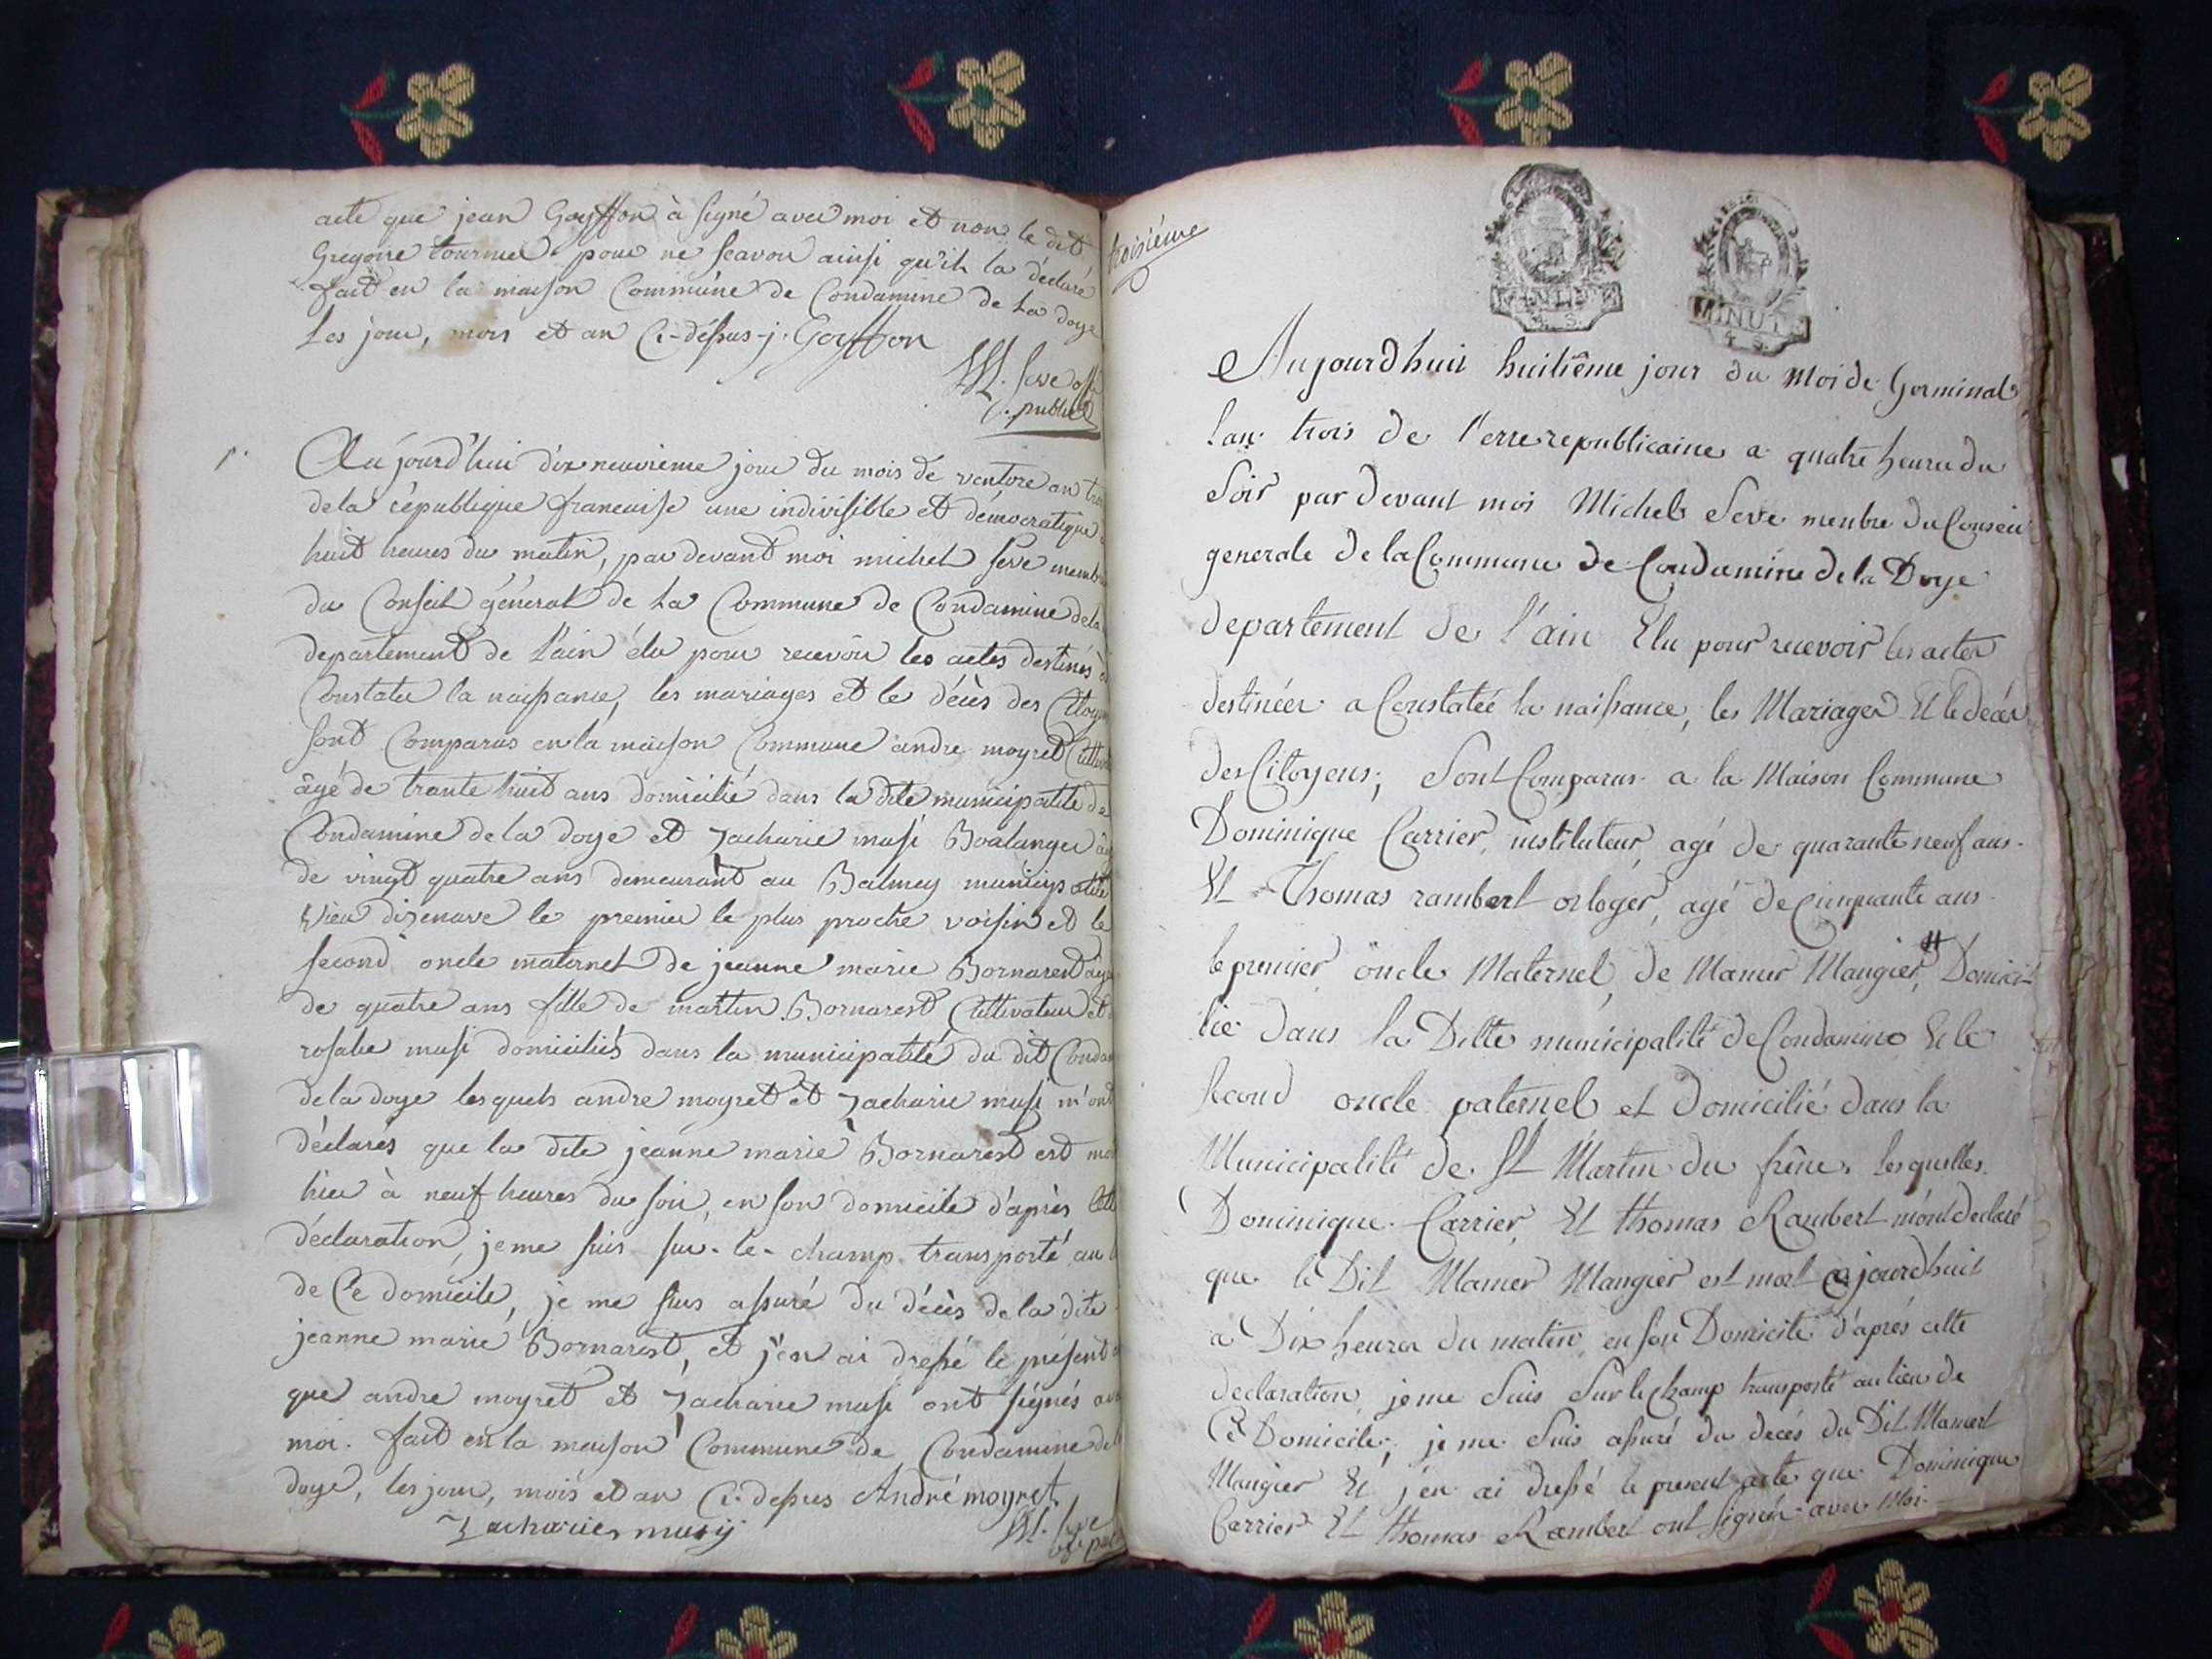 acte que jean Goyffon à signé avec moi et non le dit
Gregoire tournier pour ne scavoir ainsi qu'il la déclaré
fait en la maison Commúne de Condamine de La doye
Les jour, mois et an Ci-dessus j. Goyffon
M. Seve off.
public
1.
Aujourd'hui dix neuvieme jour du mois de ventose an trois
de la république francaise une indivisible et démocratique à
huit heures du matin, par devant moi michel seve membre
du Conseil général de La Commune de Condamine de la
departement de L'ain élu pour recevoir les actes destinés à
Constater la naissance, les mariages et le décès des Citoyens
sont Comparus en la maison Commune andre moyret Cultivat
âgé de trante huit ans domicilié dans la dite municipalité de
Condamine de la doye et Zacharie musi Boulanger âgé
de vingt quatre ans demeurant au Balmey municipalité
Vieu dizenave le premier le plus proche voisin et le
second oncle maternel de jeanne marie Bornarest âgée
de quatre ans fille de martin Bornarest Cultivateur et
rosalie musi domiciliés dans la municipalité du dit Conda
de la doye lesquels andre moyret et Zacharie musi m'ont
déclarés que la dite jeanne marie Bornarest est mo
hier à neuf heures du soir, en son domicile d'après cette
déclaration, je me suis sur-le-champ transporté au l
de Ce domicile, je me suis assuré du décès de la dite
jeanne marie Bornarest, et j'en ai dressé le présent a
que andre moyret et Zacharie musi ont signés avec
moi. fait en la maison Commune de Condamine de l
doye, les jour, mois et an Ci-dessus André moyret
Zacharie musy
M. Seve
troisième
MINUTE
4 S.
MINUTE
4 S.
Aujourdhuit huitiême jour du Moi de Germinal
lan trois de l'erre republicaine a quatre heure du
Soir par devant moi Michel Seve menbre du Conseil
generale de la Commune de Condamine de la Doye
departement de l'ain Elu pour recevoir les actes
destinées a Constatée la naissance, les Mariages Et le décés
des Citoyens; Sont Comparus a la Maison Commune
Dominique Carrier, instituteur, agé de quarante neuf ans.
Et Thomas rambert orloger, agé de Cinquante ans.
le premier oncle Maternel de Mamer Mangier, # Domici-
lie dans la Ditte municipalité de Condamine Et le
second oncle paternel et domicilié dans la
Municipalité de St Martin du frêne. lesquelles
Dominique Carrier Et thomas Rambert mónt declaré
que le Dit Mamer Mangier est mort ajourdhuit
a Dix heures du matin, en son Domicile d'aprés cette
declaration, je me Suis Sur le Champ transporté au lieu de
Ce Domicile; je me Suis assuré du decés du Dit Mamert
Mangier Et j'en ai dressé le present acte que Dominique
Carrier Et thomas Rambert ont signés avec Moi.